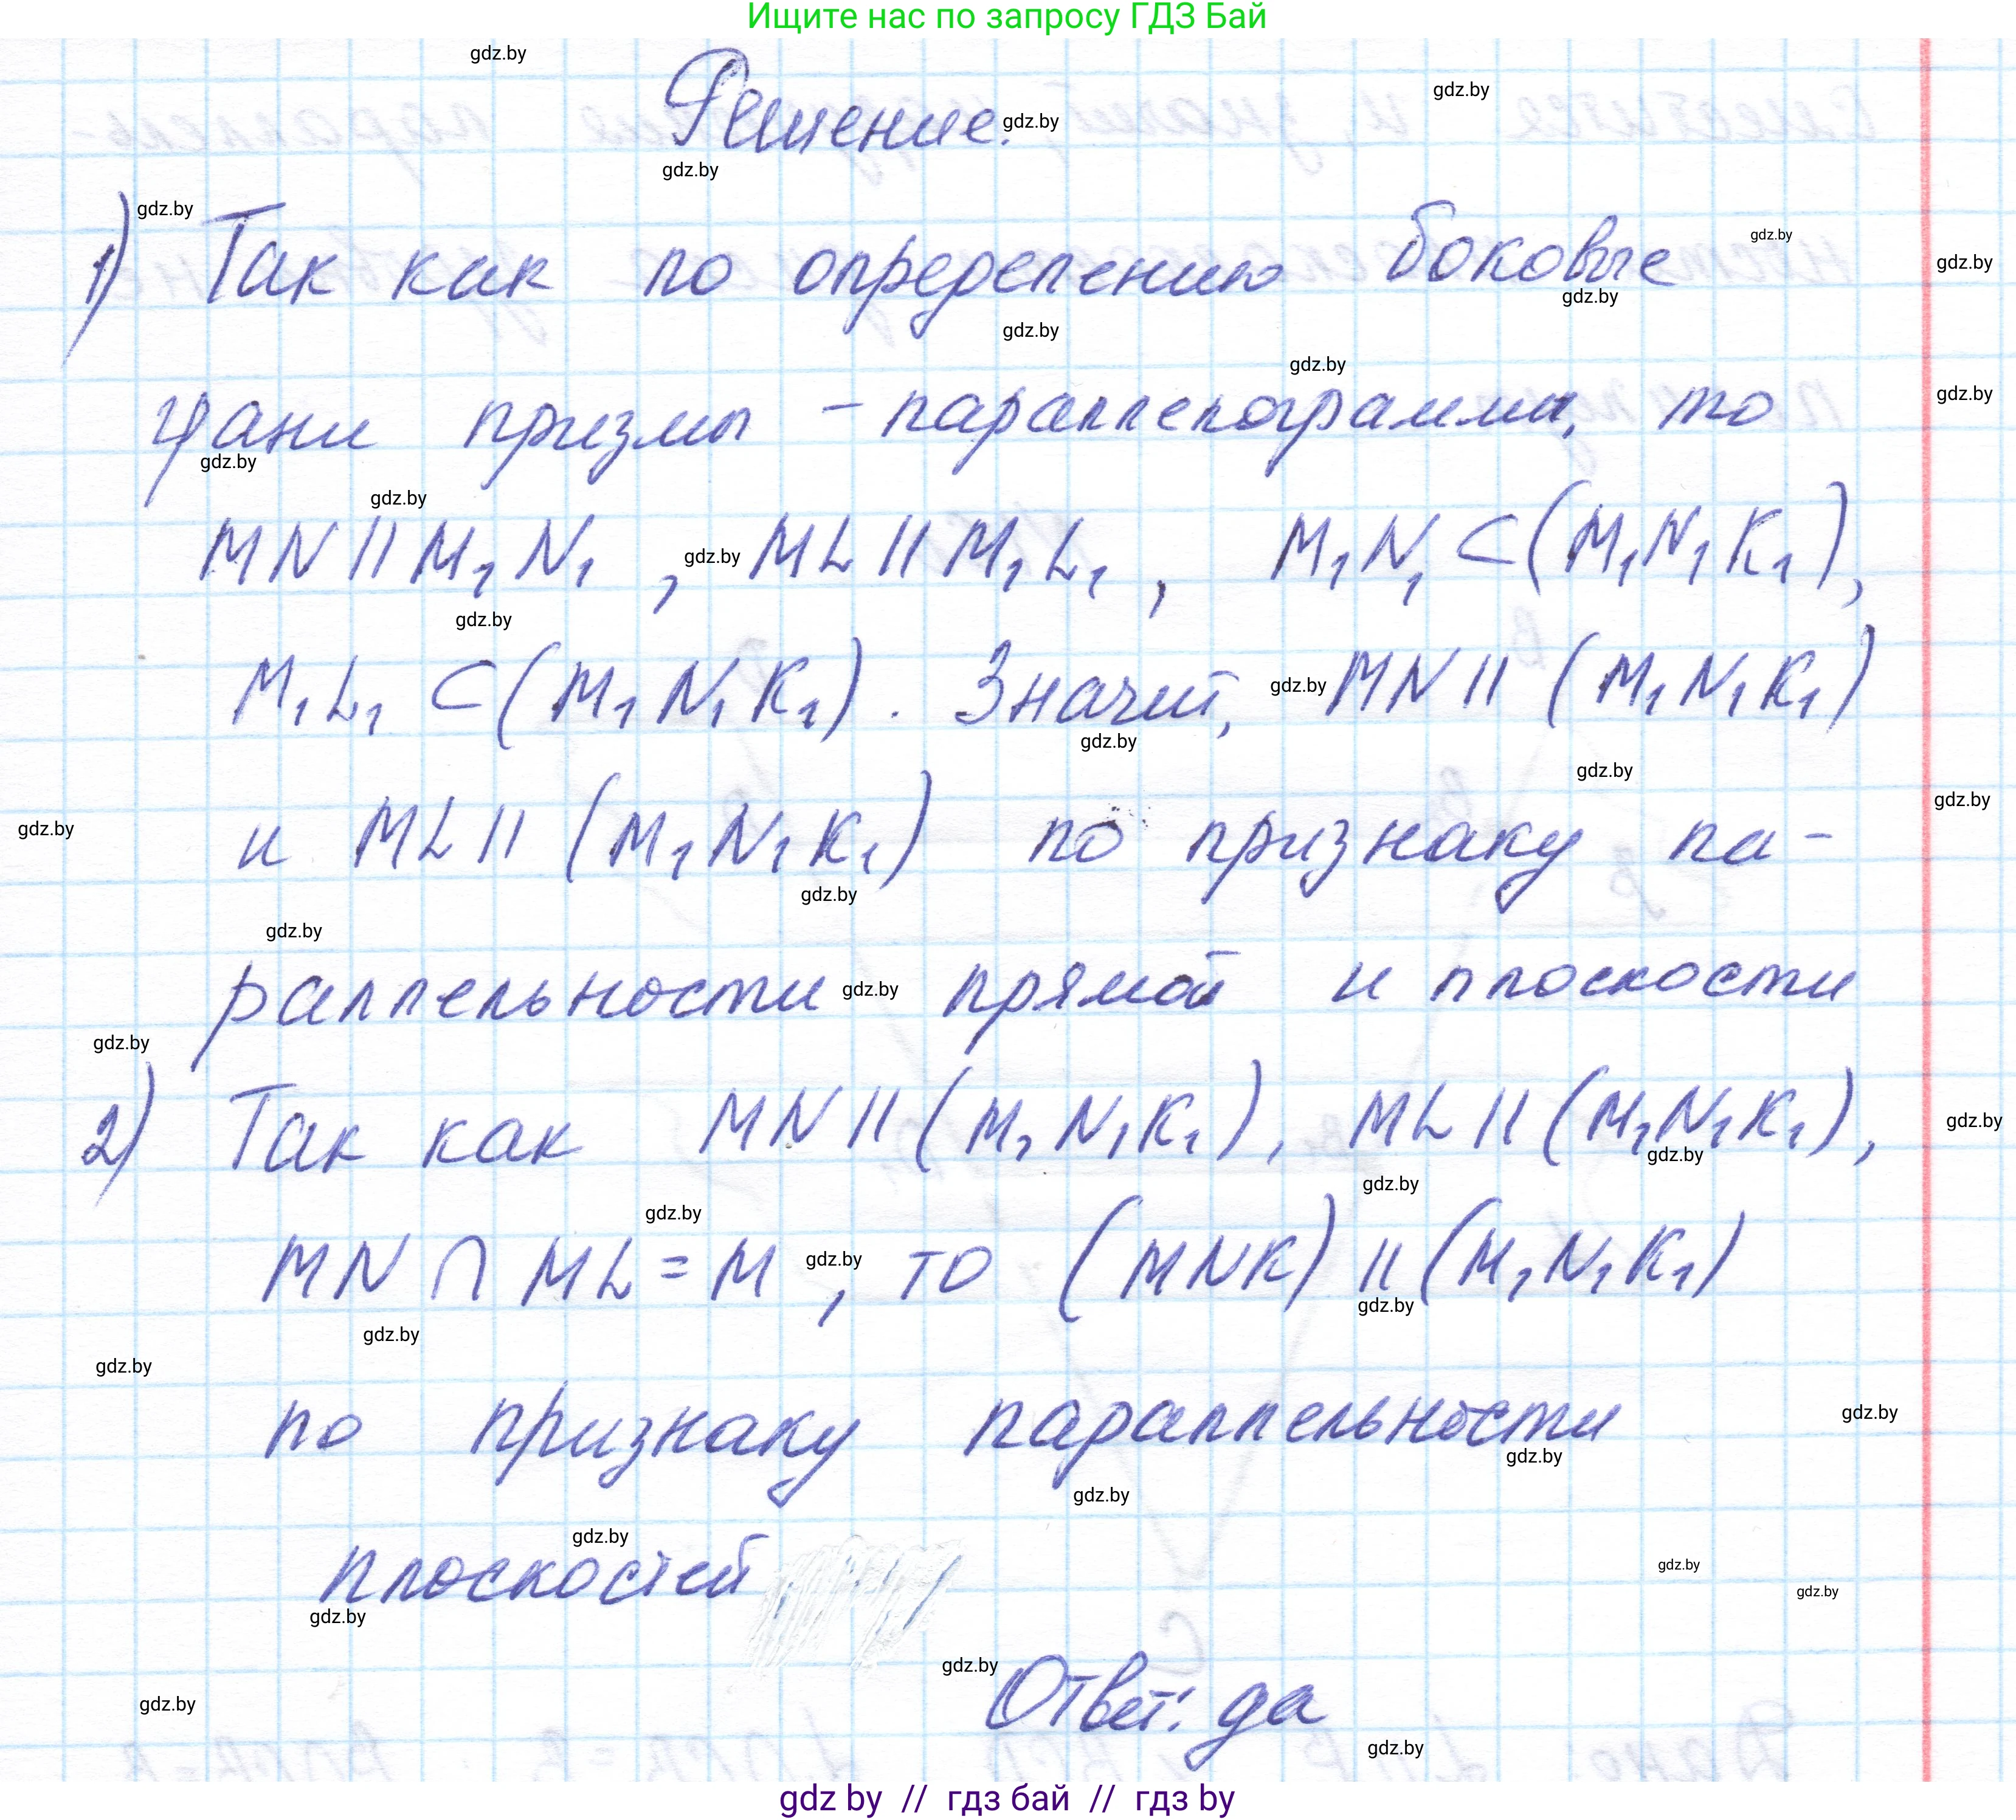 Ищите нас по запросу ГДЗ Бай
gdz.by
gdz.by
Решение. gdz.by
gdz.by
gdz.by
1) Так как по определению боковые gdz.by
gdz.by
gdz.by
gdz.by
gdz.by
грани призмы – параллелограммы, то gdz.by
gdz.by
gdz.by
MN || M₁N₁ , gdz.by ML || M₁L₁ , M₁N₁ ⊂ (M₁N₁K₁),
gdz.by
M₁L₁ ⊂ (M₁N₁K₁). Значит, gdz.by MN || (M₁N₁K₁)
gdz.by
gdz.by
gdz.by
gdz.by и ML || (M₁N₁K₁) по признаку па-
gdz.by
gdz.by
раллельности gdz.by прямой и плоскости
gdz.by
2) Так как MN || (M₁N₁K₁), ML || (M₁N₁K₁), gdz.by
gdz.by
gdz.by
gdz.by
MN ∩ ML = M gdz.by , то (MNK) || (M₁N₁K₁)
gdz.by
gdz.by
gdz.by
по признаку параллельности gdz.by
gdz.by
gdz.by
gdz.by
плоскостей gdz.by
gdz.by
gdz.by
gdz.by
Ответ: да
gdz.by
gdz.by
gdz by // гдз бай // гдз by